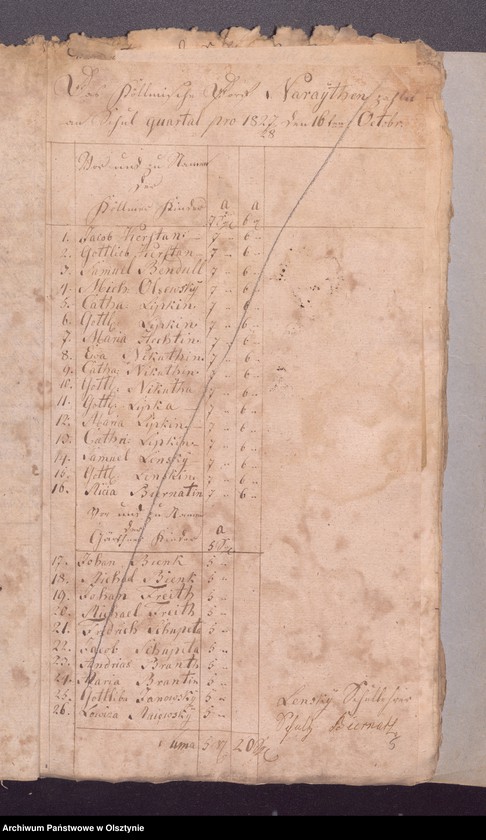 Das Köllmische Dorf Naraythen zahlt
an Schul quartal pro 1827/28 den 16ten Octobr
Vor und zu Namen
der
Köllmer Kinder a a
7 6
1. Jacob Kerstan 7 6
2. Gottlieb Kerstan 7 6
3. Samuel Bendull 7 6
4. Mich Olsewsky 7 6
5. Catha Lipkin 7 6
6. Gottl Lipkin 7 6
7. Maria Hechtin 7 6
8. Ewa Nikuthin 7 6
9. Catha Nikuthin 7 6
10. Gottl Nikutha 7 6
11. Gottl Lipka 7 6
12. Maria Lipkin 7 6
13. Catha Lipkin 7 6
14. Samuel Lensky 7 6
15. Gottl Lenskin 7 6
16. Biernatin 7 6
Vor und zu Namen
der
Gärtner Kinder a
5
17. Johan Bienk 5
18. Michal Bienk 5
19. Johan Freith 5
20. Michael Freith 5
21. Fridrich Schupeta 5
22. Jacob Schupeta 5
23. Andrias Brant 5
24. Maria Brantin 5
25. Gottliba Janowsky 5
26. Lowisa 5
Lensky Schullehrer
Schultz Biernatz
Suma 5 20
Archiwum Państwowe w Olsztynie